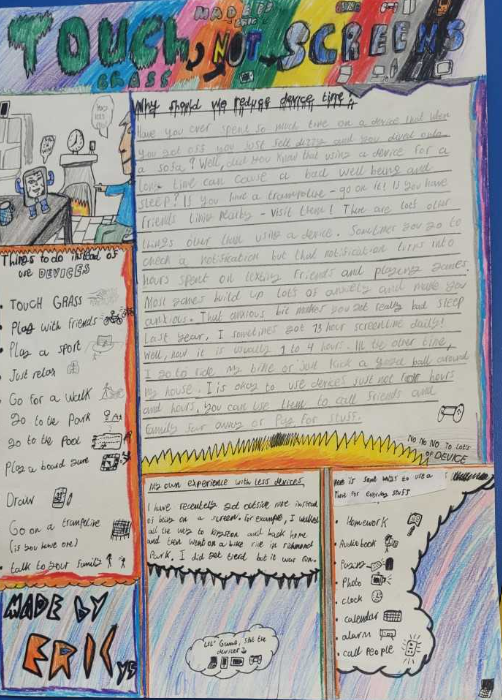 MADE IS
TOUCH NOT SCREENS
GRASS
Why should we reduce device time
Have you ever spent so much time on a device that when
you got off you just felt dizzy and you dived onto
a sofa? Well, did you know that using a device for a
long time can cause a bad well being and
sleep? Is you have a trampoline - go on it! Is you have
friends living nearby - visit them! There are lots other
things other than using a device. Sometimes you go to
check a notification but that notification turns into
hours spent on texting friends and playing games.
Most games build up lots of anxiety and make you
anxious. That anxious bit makes you get really bad sleep
Last year, I sometimes got 13 hour screentime daily!
Well, now it is usually 1 to 4 hours. In the other time,
I go to ride my bike or just kick a speed ball around
my house. It is okay to use devices just not for hours
and hours. You can use them to call friends and
family far away or pay for stuff.
No No No To Lots
of DEVICE
Things to do instead of
use DEVICES
• TOUCH GRASS
• Play with friends
• Play a sport
• Just relax
• Go for a walk
Go to the Park
Go to the Pool
Play a board game
Draw
• Go on a trampoline
(is you have one)
• talk to your family
MADE BY
ERIC Y5
My own experience with less devices
I have recently got outside more instead
of being on a screen. For example, I walked
all the way to and back home
and then went on a bike ride in richmond
Park. I did get tired but it was fun.
devices
Here is some ways to use a
for enjoy stuff
• Homework
• Audiobook
•
• Photo
• clock
• calendar
• alarm
• call People